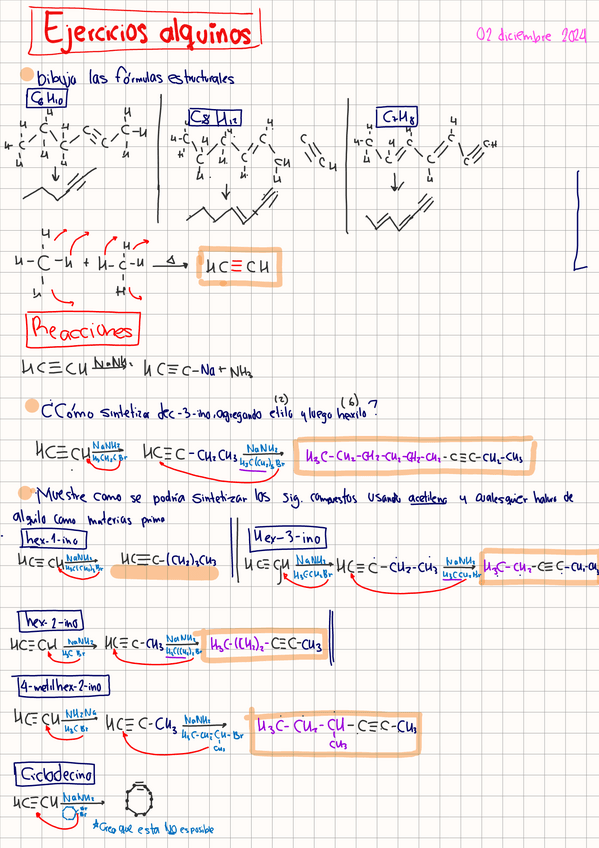 Ejercicios alquinos
02 diciembre 2024
Dibuja las fórmulas estructurales
C6H10
C8H12
C7H8
H-C-H + H-C-H Δ HC≡CH
Reacciones
HC≡CH NaNH2 HC≡C-Na + NH3
(2) (6)
¿Cómo sintetizar dec-3-ino, agregando etilo y luego hexilo?
HC≡CH NaNH2 H3CH2C Br HC≡C-CH2CH3 NaNH2 H3C(CH2)5Br H3C-CH2-CH2-CH2-CH2-CH2-C≡C-CH2-CH3
Muestre como se podría sintetizar los sig. compuestos usando acetileno y cualesquier haluro de
alquilo como materias primo
hex-1-ino
HC≡CH NaNH2 H3C(CH2)3Br HC≡C-(CH2)3CH3
Hex-3-ino
HC≡CH NaNH2 H3CCH2Br HC≡C-CH2-CH3 NaNH2 H3CCH2Br H3C-CH2-C≡C-CH2-CH3
hex-2-ino
HC≡CH NaNH2 H3C Br HC≡C-CH3 NaNH2 H3C(CH2)2Br H3C-(CH2)2-C≡C-CH3
4-metilhex-2-ino
HC≡CH NH2Na H3C Br HC≡C-CH3 NaNH2 H3C-CH2-CH-Br H3C-CH2-CH-C≡C-CH3
CH3 CH3
Ciclodecino
HC≡CH NaNH2 Br Br
*Creo que esta NO es posible